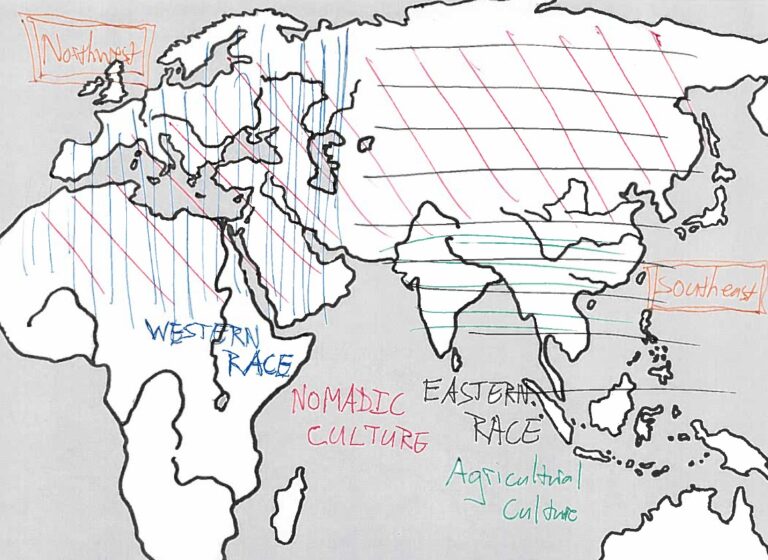 Northwest
Southeast
WESTERN
RACE
NOMADIC
CULTURE
EASTERN
RACE
Agricultural
Culture